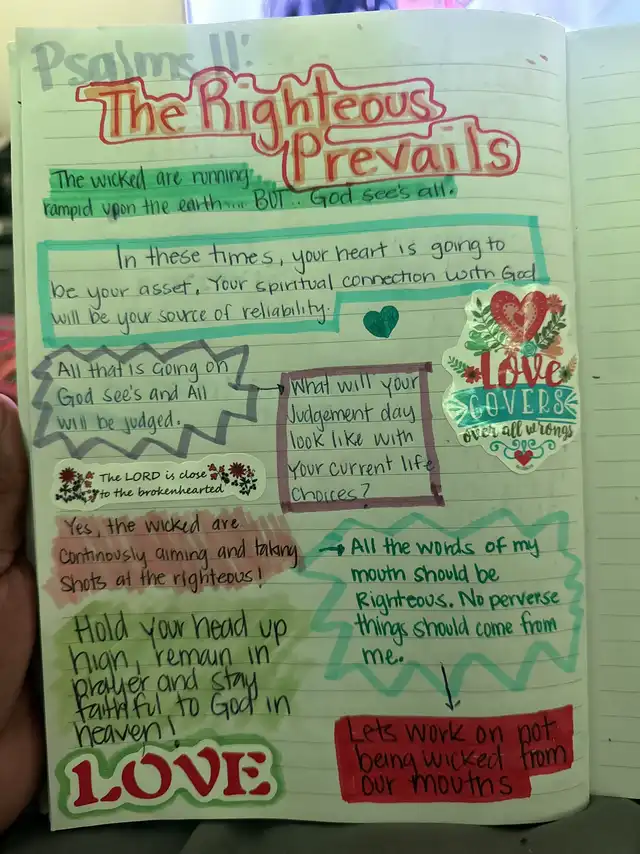 Psalms 11:
The Righteous
Prevails
The wicked are running
rampid upon the earth.... BUT.. God see's all.
In these times, your heart is going to
be your asset. Your spiritual connection with God
will be your source of reliability.
All that is Going on
God see's and All
will be judged.
What will your
Judgement day
look like with
your current life
choices?
Love
COVERS
over all wrongs
The LORD is close
to the brokenhearted
Yes, the wicked are
continously aiming and taking
shots at the righteous!
All the words of my
mouth should be
Righteous. No perverse
things should come from
me.
Hold your head up
high, remain in
prayer and stay
faithful to God in
heaven!
Lets work on not
being wicked from
our mouths
LOVE